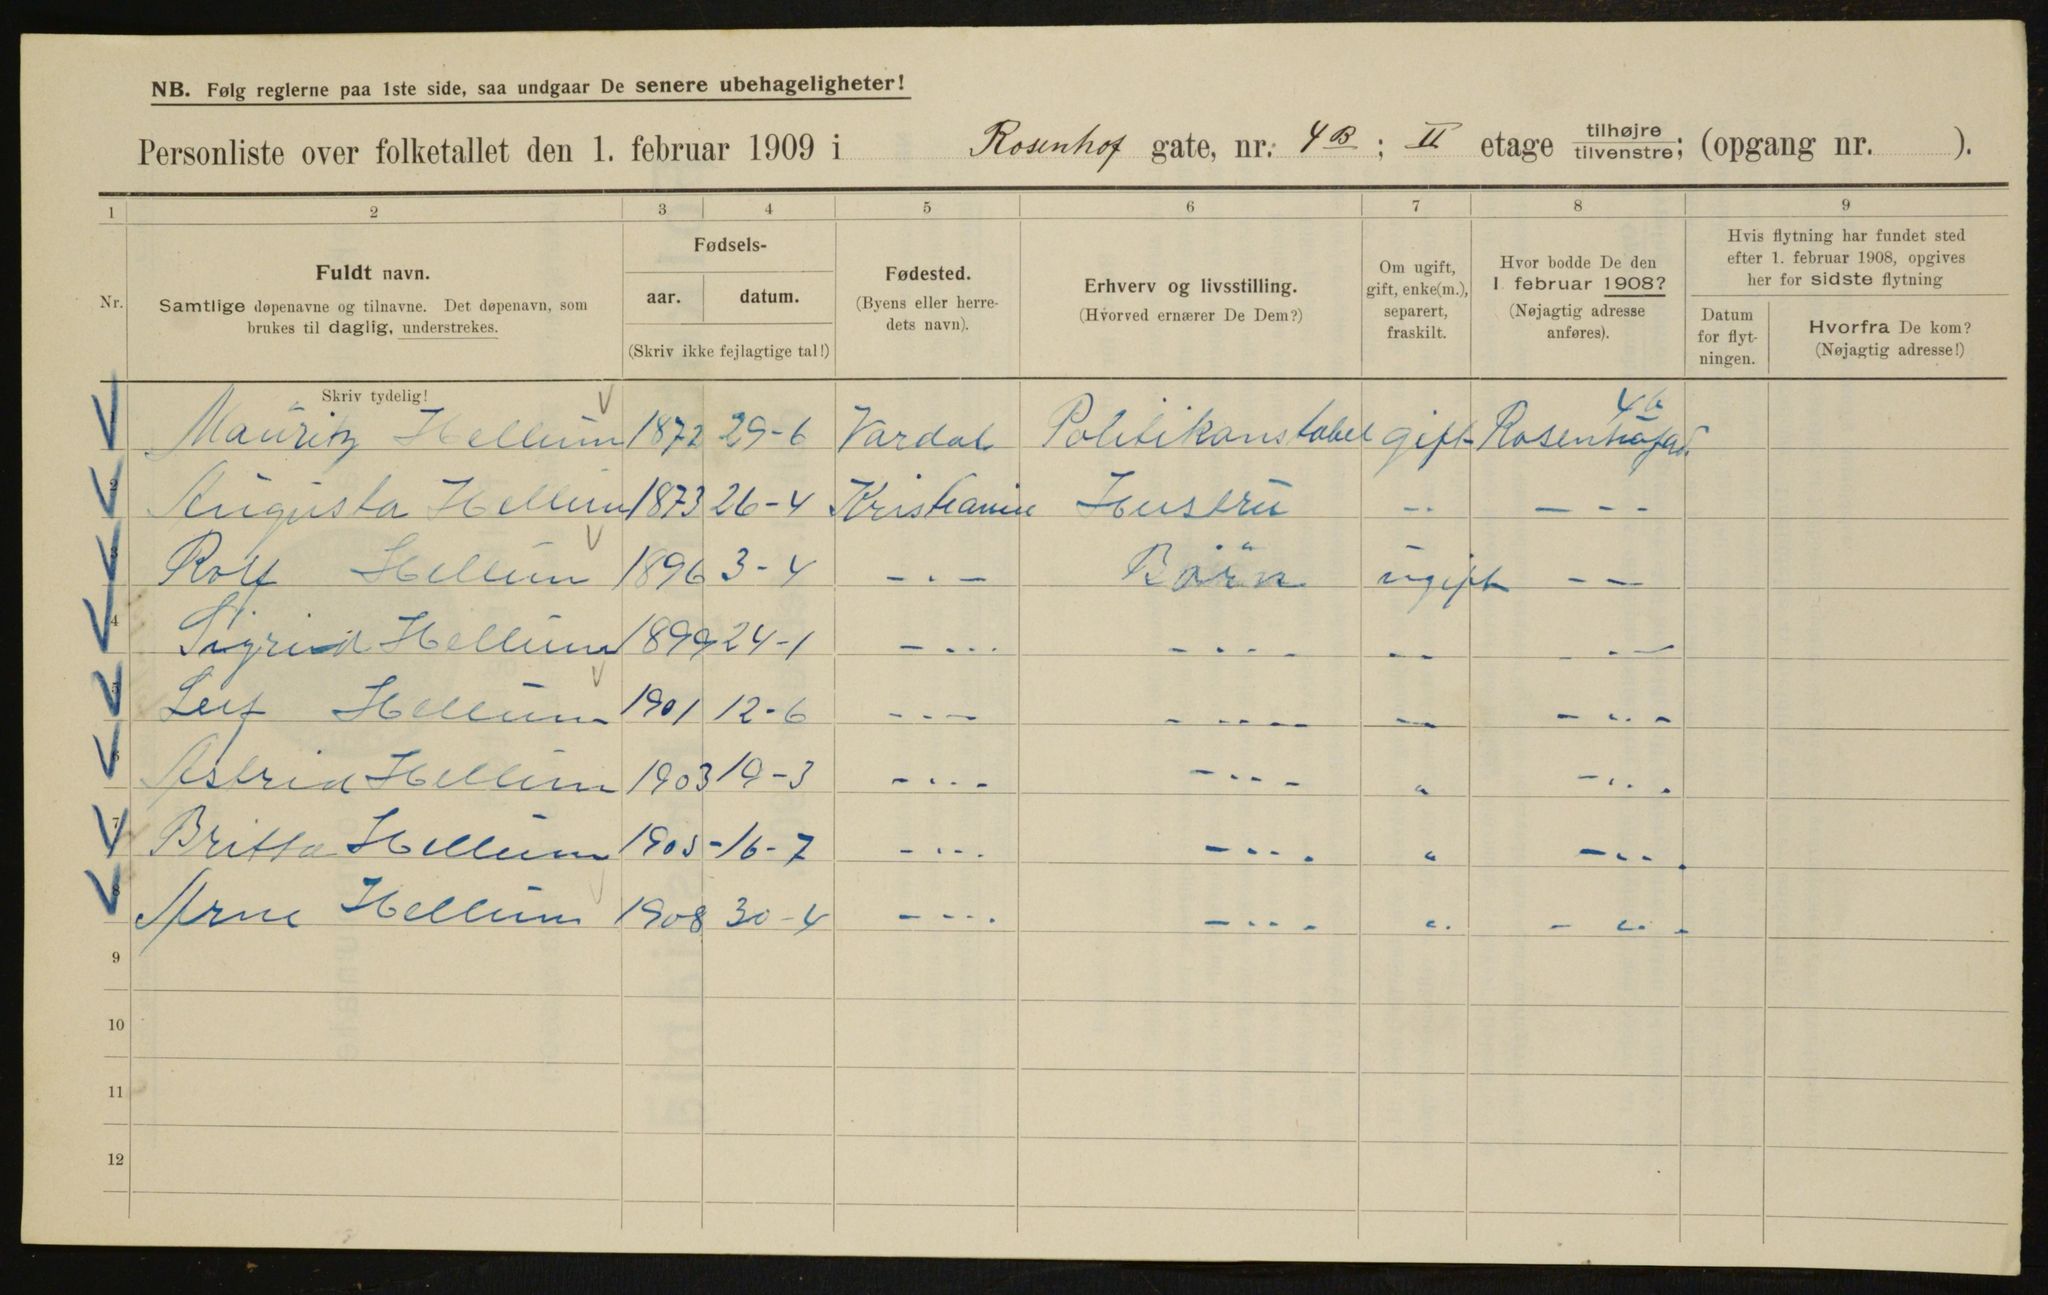 NB. Følg reglerne paa 1ste side, saa undgaar De senere ubehageligheter!
Personliste over folketallet den 1. februar 1909 i Rosenhof gate, nr. 4B ; II etage tilhøjre/tilvenstre; (opgang nr. ).
1 2 3 4 5 6 7 8 9
Nr.
Fuldt navn.
Samtlige døpenavne og tilnavne. Det døpenavn, som
brukes til daglig, understrekes.
Fødsels-
aar. datum.
(Skriv ikke fejlagtige tal!)
Fødested.
(Byens eller herre-
dets navn).
Erhverv og livsstilling.
(Hvorved ernærer De Dem?)
Om ugift,
gift, enke(m.),
separert,
fraskilt.
Hvor bodde De den
1. februar 1908?
(Nøjagtig adresse
anføres).
Hvis flytning har fundet sted
efter 1. februar 1908, opgives
her for sidste flytning
Datum
for flyt-
ningen.
Hvorfra De kom?
(Nøjagtig adresse!)
Skriv tydelig!
1 Mauritz Hellum 1872 29-6 Vardal Politikonstabel gift Rosenhofgd. 4b
2 Augusta Hellum 1873 26-4 Kristiania Hustru -- - - -
3 Rolf Hellum 1896 3-4 - . - Börn ugift - -
4 Sigrid Hellum 1899 24-1 - . . . - . . - - - . . -
5 Leif Hellum 1901 12-6 - - - - . . . - - - - . . -
6 Astrid Hellum 1903 19-3 - . . - - . . - " - . . .
7 Britta Hellum 1905 - 16-7 - . . . - . . . " - . . .
8 Arne Hellum 1908 30-4 - . . . - . . . " - " . .
9
10
11
12